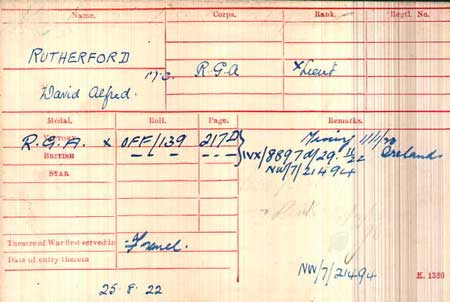 Name. Corps. Rank. Regtl. No.
RUTHERFORD
M.C. R.G.A x Lieut
David Alfred.
Medal. Roll. Page. Remarks.
VICTORY
R.G.A. x OFF/139 217D
BRITISH — " — - - - IVX/8897 d/29. 11/22 Ireland
NW/7/21494
STAR
Theatre of War first served in
Date of entry therein
NW/7/21494
K. 1380
25. 8. 22